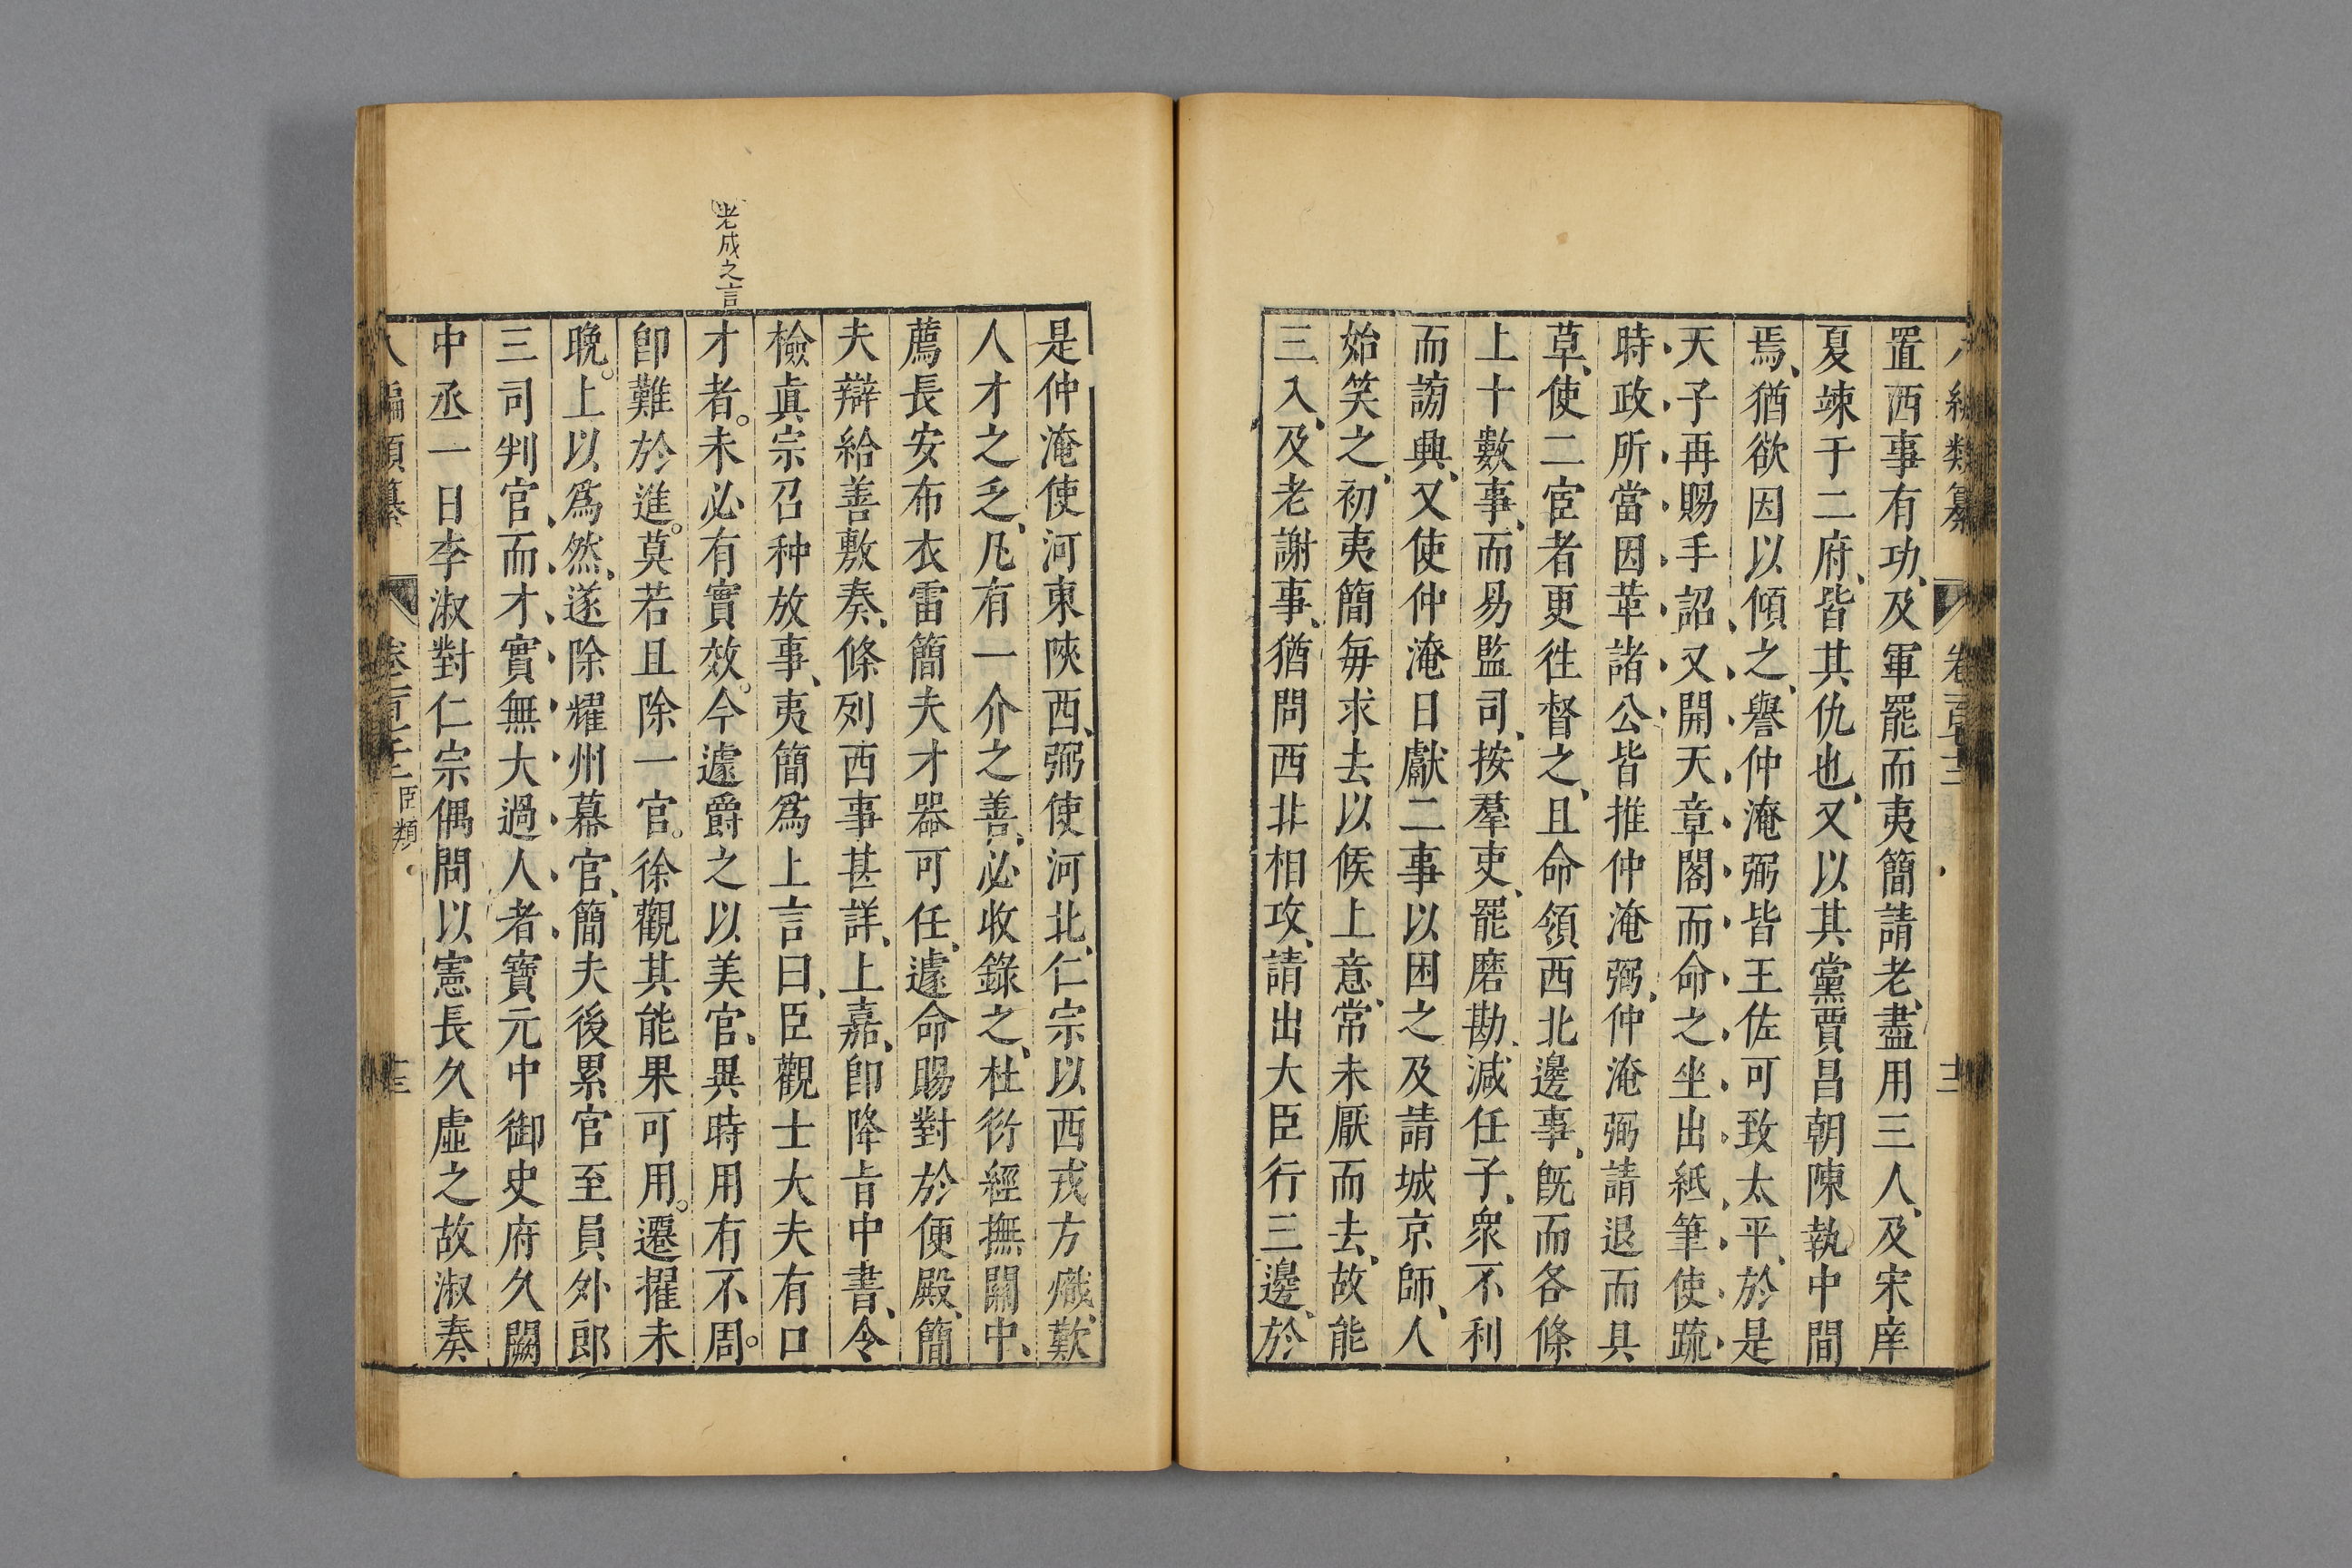 置西事有功及軍罷而夷簡請老盡用三人及宋庠
夏竦于二府皆其仇也又以其黨賈昌朝陳執中間
焉猶欲因以傾之譽仲淹弼皆王佐可致太平於是
天子再賜手詔又開天章閣而命之坐出紙筆使疏
時政所當因革諸公皆推仲淹弼仲淹弼請退而具
草使二宦者更徃督之且命領西北邊事既而各條
上十數事而易監司按羣吏罷磨勘減任子衆不利
而謗興又使仲淹日獻二事以困之及請城京師人
始笑之初夷簡每求去以候上意常未厭而去故能
三入及老謝事猶問西北相攻請出大臣行三邊於
是仲淹使河東陝西弼使河北仁宗以西戎方熾歎
人才之乏凡有一介之善必收錄之杜衍經撫關中
薦長安布衣雷簡夫才器可任遽命賜對於便殿簡
夫辯給善敷奏條列西事甚詳上嘉即降旨中書令
檢真宗召种放事夷簡爲上言曰臣觀士大夫有口
老成之言
才者。未必有實效。今遽爵之以美官異時用有不周。
卽難於進。莫若且除一官。徐觀其能果可用。遷擢未
晚。上以爲然遂除耀州幕官簡夫後累官至員外郎
三司判官而才實無大過人者寶元中御史府久闕
中丞一日李淑對仁宗偶問以憲長久虛之故淑奏
臣類